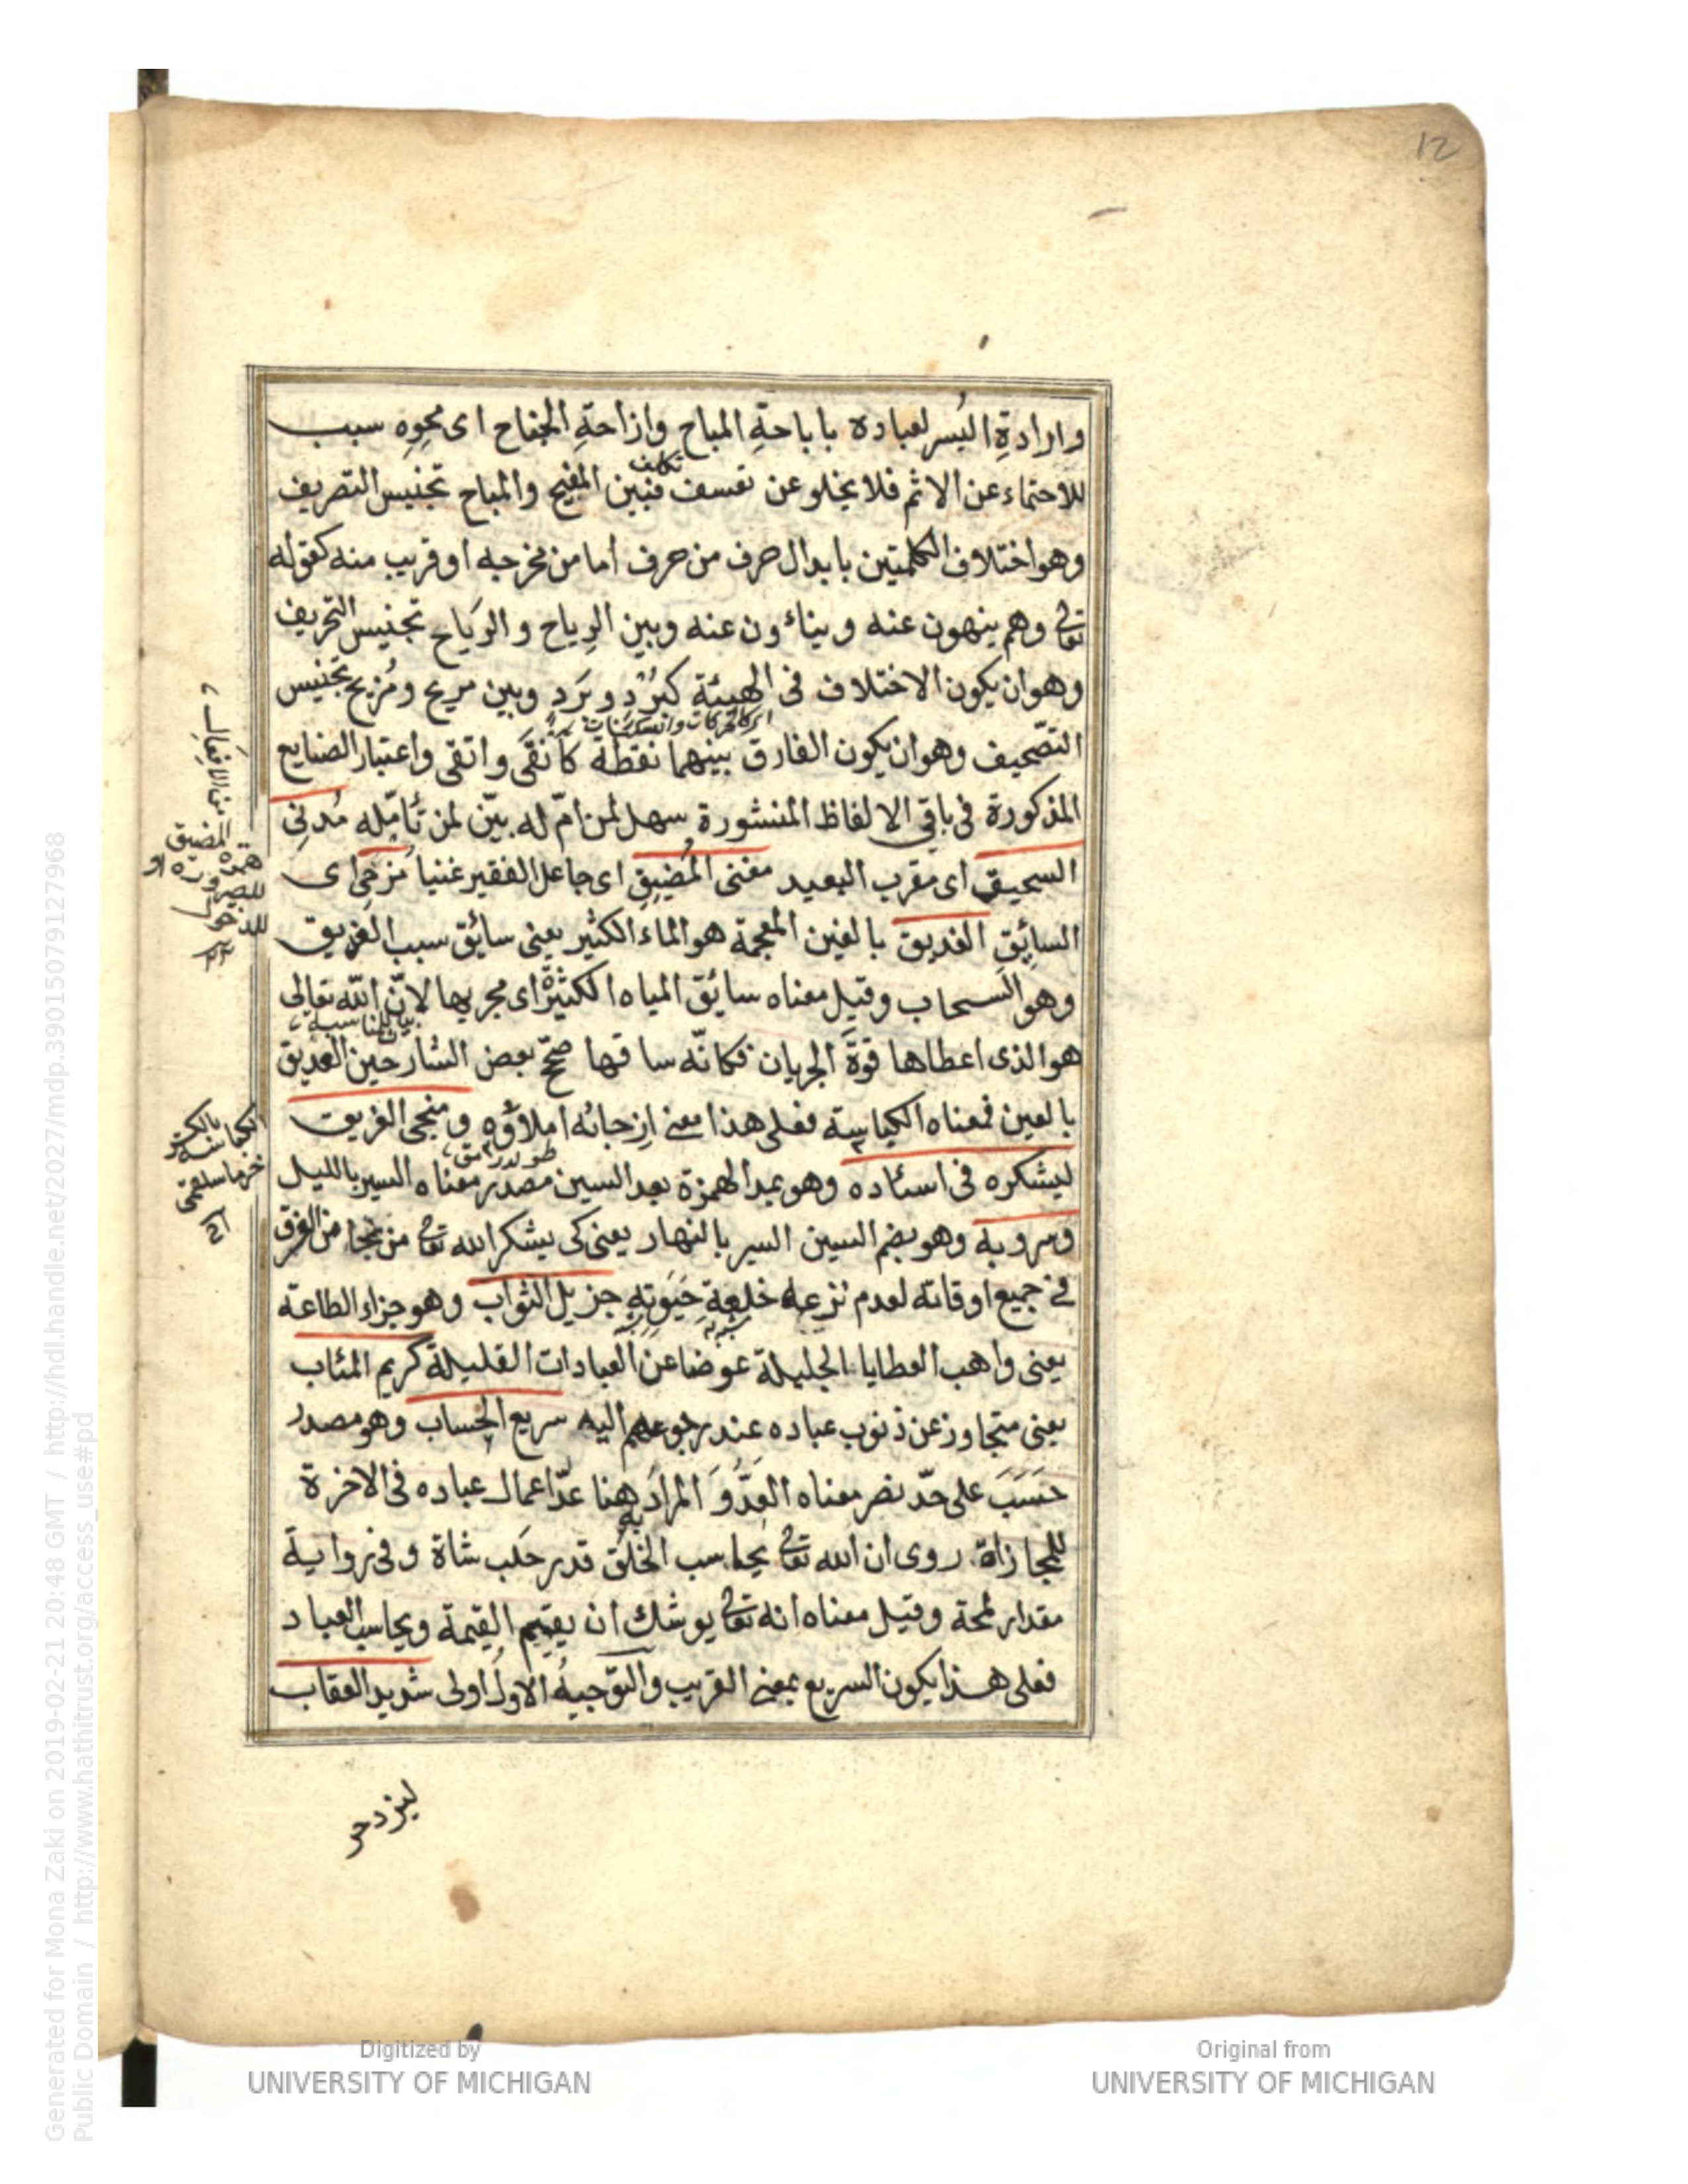 12
وارادةِ اليُسر لعباده باباحةِ المباح وازاحةِ الجناح اى محوِه سبب
تكلف
للاحتماء عن الاثم فلا يخلو عن تعسف فبين المفيح والمباح تجنيس التصريف
وهو اختلاف الكلمتين بابدال حرف من حرف اما من مخرجه او قريب منه كقوله
تعالى وهم ينهون عنه وينأون عنه وبين الرِياح والرَياح تجنيس التحريف
وهو ان يكون الاختلاف فى الهيئة كبُرْدٍ وبَرَدٍ وبين مريح ومُزيح تجنيس
اى كالحركات والسكنات
التصّحيف وهو ان يكون الفارق بينهما نقطة كأنقَى واتقى واعتبار الصنايع
المذكورة فى باقى الالفاظ المنشورة سهل لمن امّ له بيّن لمن تأمّله مُدنِى
السحيق اى مقرب البعيد مغنى المُضيق اى جاعل الفقير غنيا مُزجى اى
السائِقِ الغديق بالغين المعجمة هو الماء الكثير يعنى سائق سبب الغزيق
وهو السحاب وقيل معناه سائق المياه الكثيرة اى مجريها لانّ الله تعالى
هو الذى اعطاها قوةَ الجريان فكانّه ساقها صحّح بعض الشارحين العديق
بالعين فمعناه الكياسة فعلى هذا معنى ازجائه املاؤه ومنجى الغريق
ليشكره فى اسئاده وهو بمد الهمزة بعد السين مصدر معناه السير بالليل
وسروبه وهو بضم السين السير بالنهار يعنى كى يشكر الله تعالى من نجا من الغرق
فى جميع اوقاته لعدم نزعه خلعةِ حَيَوتِهِ جزيل الثواب وهو جزاء الطاعة
يعنى واهب العطايا الجليلة عوضا عن العبادات القليلة كريم المئاب
يعنى متجاوز عن ذنوب عباده عند رجوعهم اليه سريع الحساب وهو مصدر
حَسَبَ على حدّ نصر معناه العَدُّ وَ المرادَ ههنا عدّ اعمال عباده فى الاخرة
للمجازاة روى ان الله تعالى يحاسب الخلق قدر حَلَب شاة وفى رواية
مقدار لمحة وقيل معناه انه تعالى يوشك ان يقيم القيمة ويحاسب العباد
فعلى هذا يكون السريع بمعنى القريب والتوجيهُ الاولُ اولى شديد العقاب
لينزجر
همزه المضيق
للصيرورة
Generated for Mona Zaki on 2019-02-21 20:48 GMT / http://hdl.handle.net/2027/mdp.39015079127968
Public Domain / http://www.hathitrust.org/access_use#pd
Digitized by
UNIVERSITY OF MICHIGAN
Original from
UNIVERSITY OF MICHIGAN